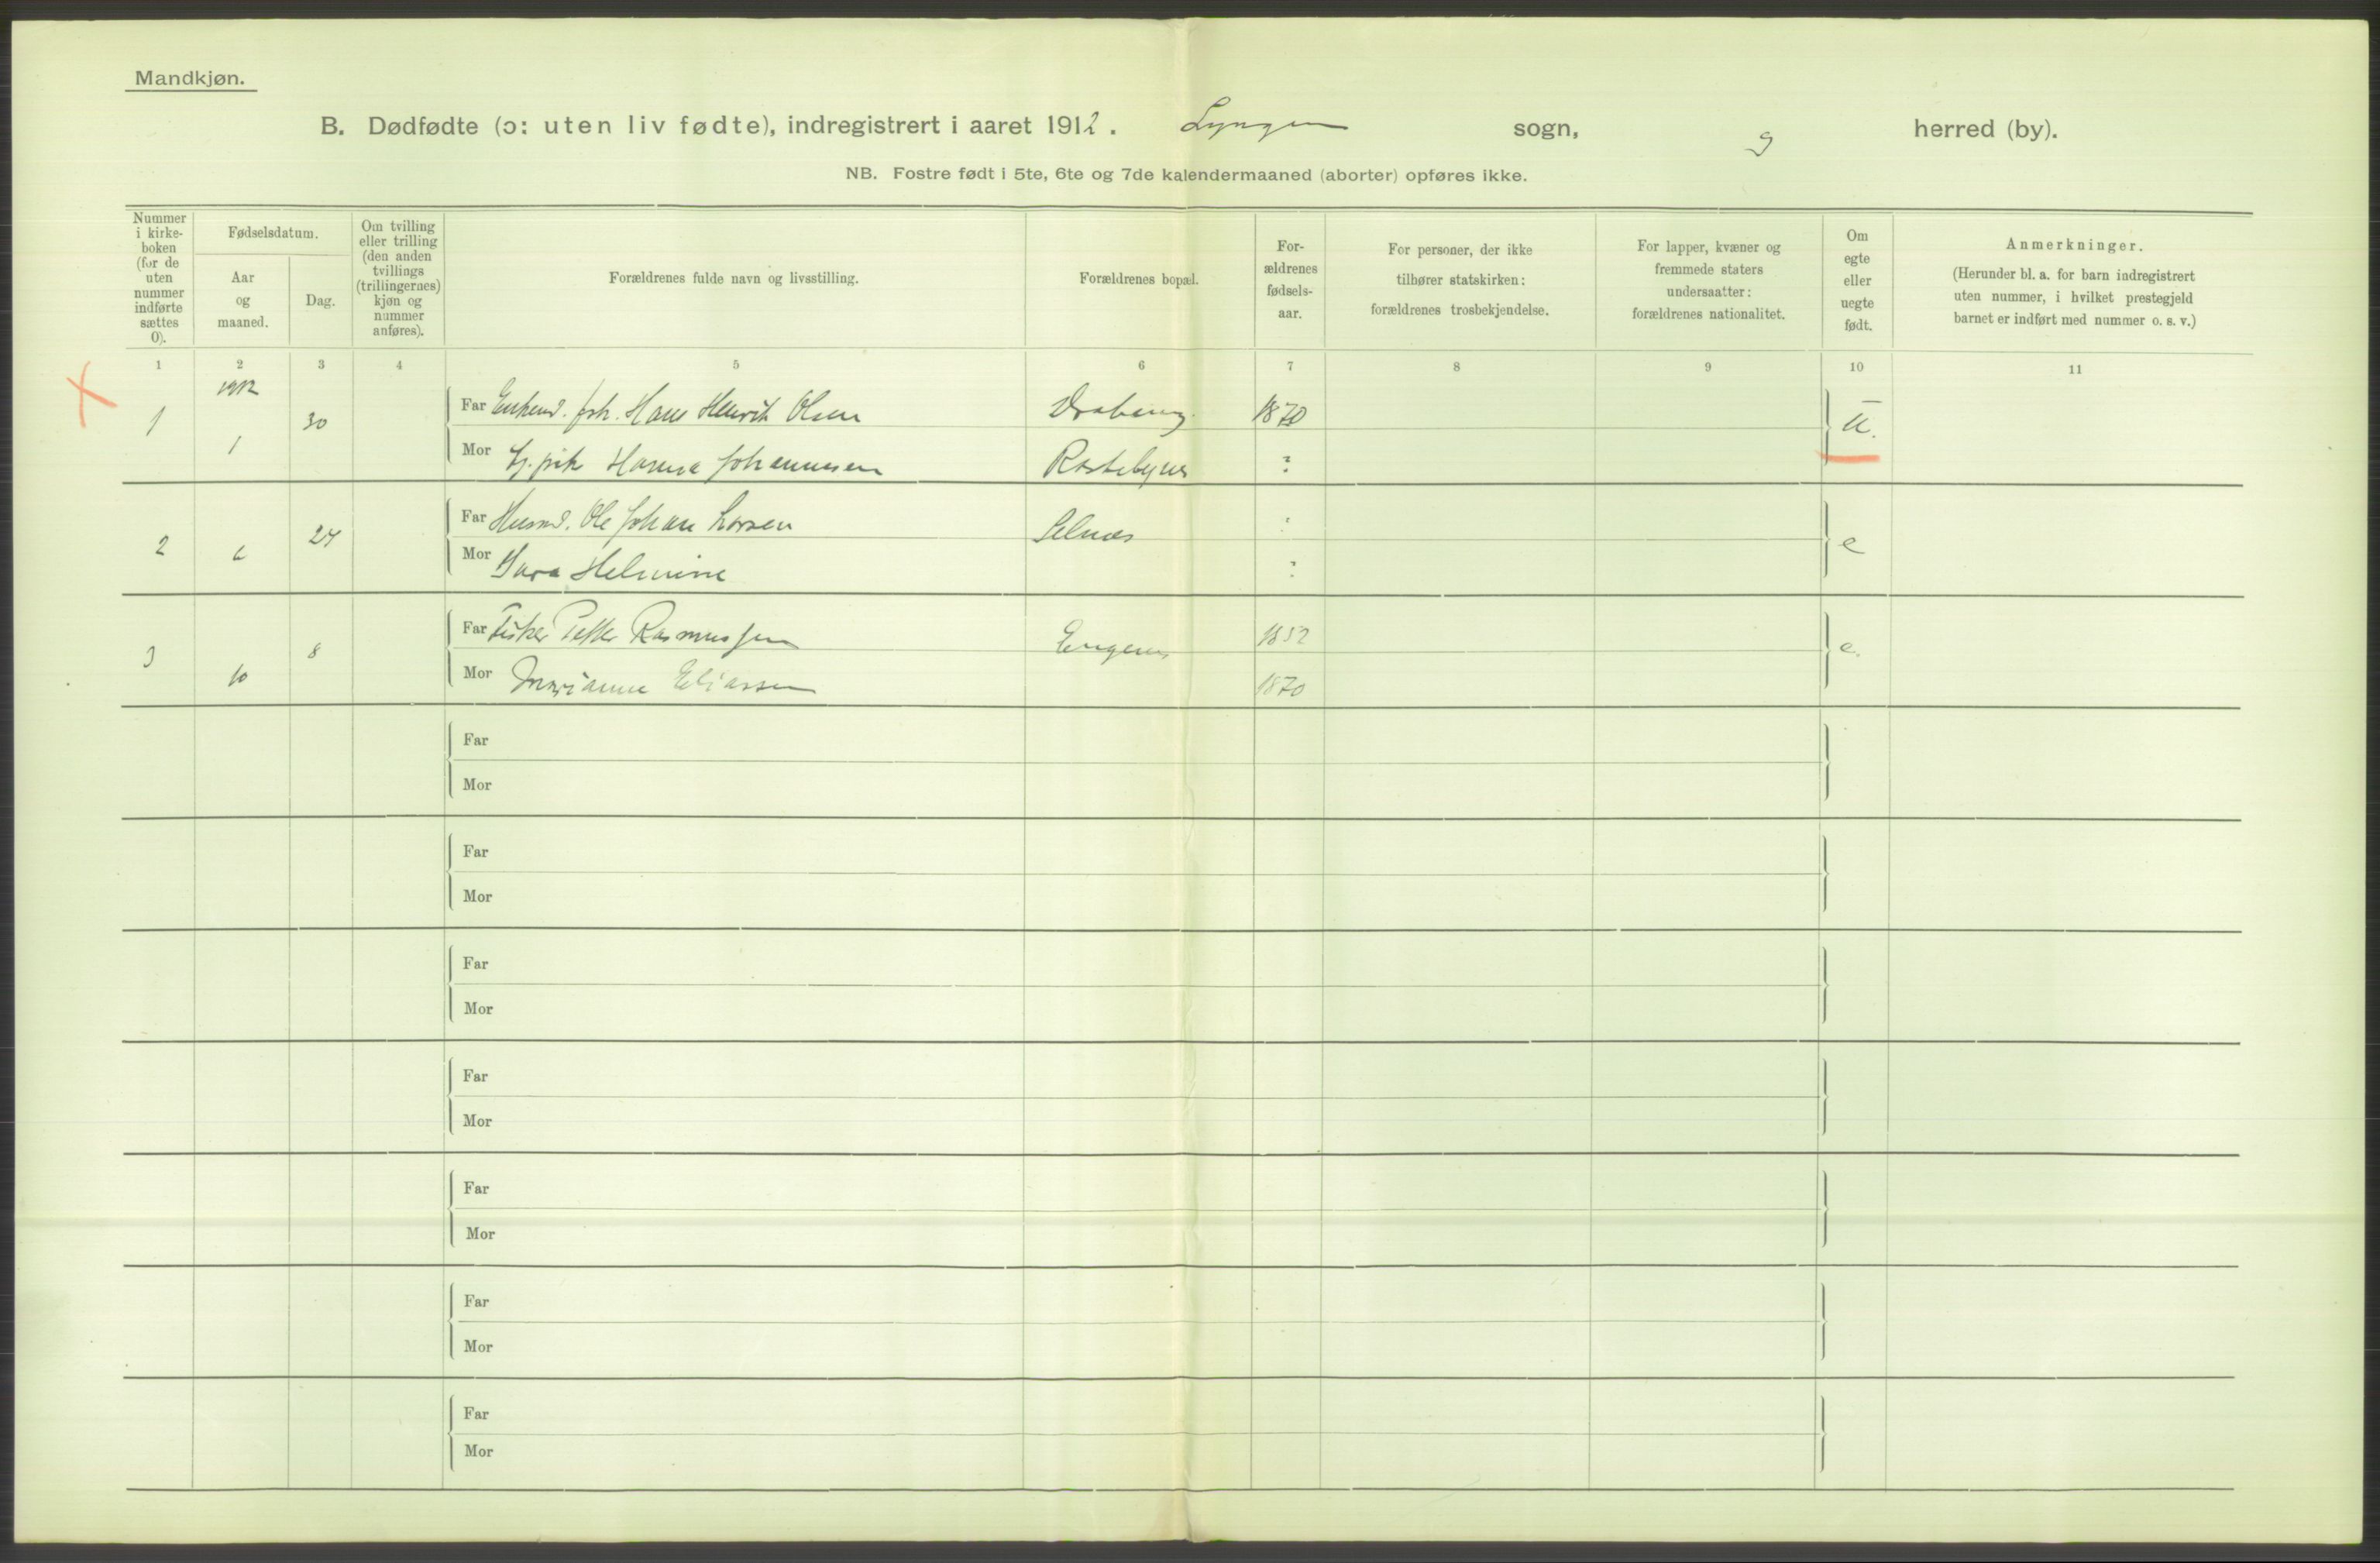 Mandkjøn.
B. Dødfødte (ɔ: uten liv fødte), indregistrert i aaret 1912. Lyngen sogn, herred (by).
NB. Fostre født i 5te, 6te og 7de kalendermaaned (aborter) opføres ikke.
Nummer
i kirke-
boken
(for de
uten
nummer
indførte
sættes
0).
Fødselsdatum.
Aar
og
maaned.
Dag.
Om tvilling
eller trilling
(den anden
tvillings
(trillingernes)
kjøn og
nummer
anføres).
Forældrenes fulde navn og livsstilling.
Forældrenes bopæl.
For-
ældrenes
fødsels-
aar.
For personer, der ikke
tilhører statskirken:
forældrenes trosbekjendelse.
For lapper, kvæner og
fremmede staters
undersaatter:
forældrenes nationalitet.
Om
egte
eller
uegte
født.
Anmerkninger.
(Herunder bl. a. for barn indregistrert
uten nummer, i hvilket prestegjeld
barnet er indført med nummer o. s. v.)
1 2 3 4 5 6 7 8 9 10 11
1912
1 1 30 Far Hans Henrik Olsen 1870 u.
Mor Hanna Johannesen ?
2 6 24 Far Ole Johan Larsen Selnes ? e
Mor Sara Helmine ?
3 10 8 Far Fisker Petter Rasmussen Engenes 1852 e.
Mor Marianne Eliassen 1870
Far
Mor
Far
Mor
Far
Mor
Far
Mor
Far
Mor
Far
Mor
Far
Mor